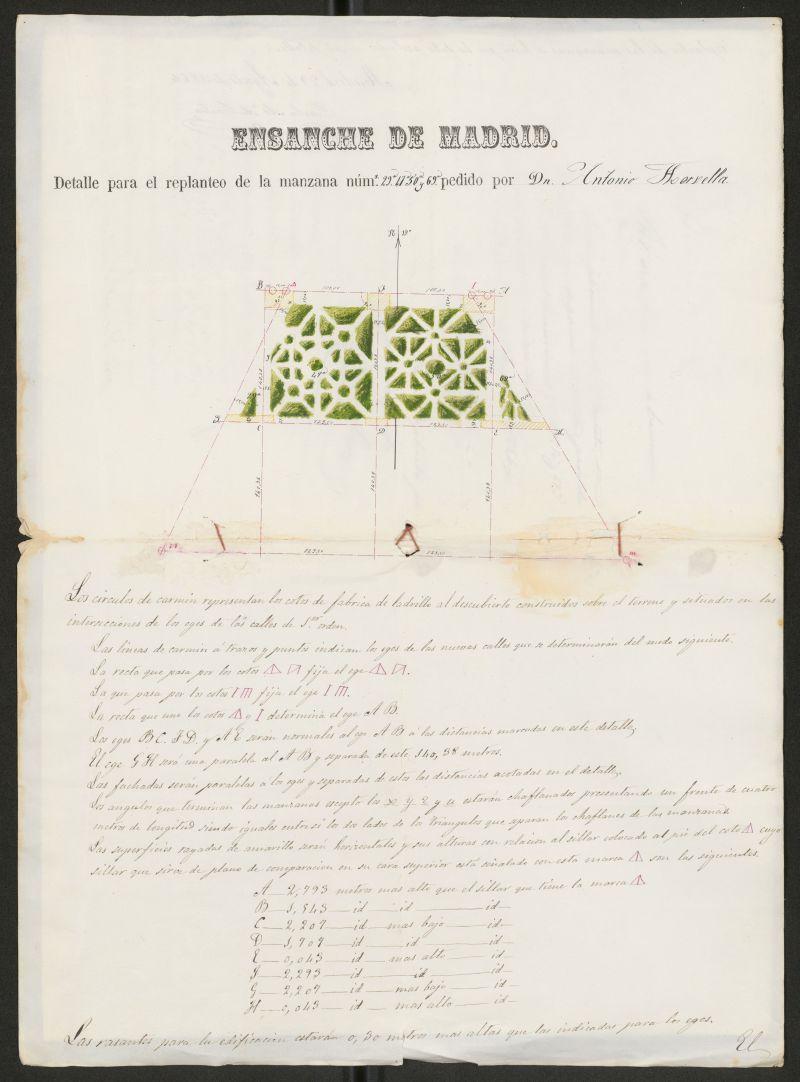 ENSANCHE DE MADRID.
Detalle para el replanteo de la manzana núm. pedido por Dn. Antonio
B
A
I
C
D
E
H
140,38
140,38
140,38
Los círculos de carmín representan los cotos de fabrica de ladrillo al descubierto construidos sobre el terreno y situados en las
intersecciones de los eges de las calles de 1er orden.
Las lineas de carmin á trazos y puntos indican los eges de las nuevas calles que se determinarán del modo siguiente.
La recta que pasa por los cotos fija el ege
La que pasa por los cotos I m fija el ege I m.
La recta que une los cotos y I determina el ege A B.
Los eges B C. F D. y A E serán normales al ege A B á las distancias marcadas en este detalle,
El ege G H será una paralela al A B y separada de este 140,38 metros.
Las fachadas serán paralelas á los eges y separadas de estos las distancias acotadas en el detalle,
Los angulos que terminan las manzanas escepto los x y z y u estarán chaflanados presentando un frente de cuatro
metros de longitud siendo iguales entre si los dos lados de los triangulos que separan los chaflanes de las manzanas
Las superficies rayadas de amarillo serán horizontales y sus alturas con relacion al sillar colocado al pié del coto cuyo
sillar que sirve de plano de comparacion en su cara superior está señalado con esta marca son las siguientes.
A — 2,793 metros mas alto que el sillar que tiene la marca
B — 1,543 — id — id — id
C — 2,207 — id — mas bajo — id
D — 1,707 — id — id — id
E — 0,043 — id — mas alto — id
F — 2,293 — id — id — id
G — 2,207 — id — mas bajo — id
H — 0,043 — id — mas alto — id
Las rasantes para la edificacion estarán 0,30 metros mas altas que las indicadas para los eges.
El